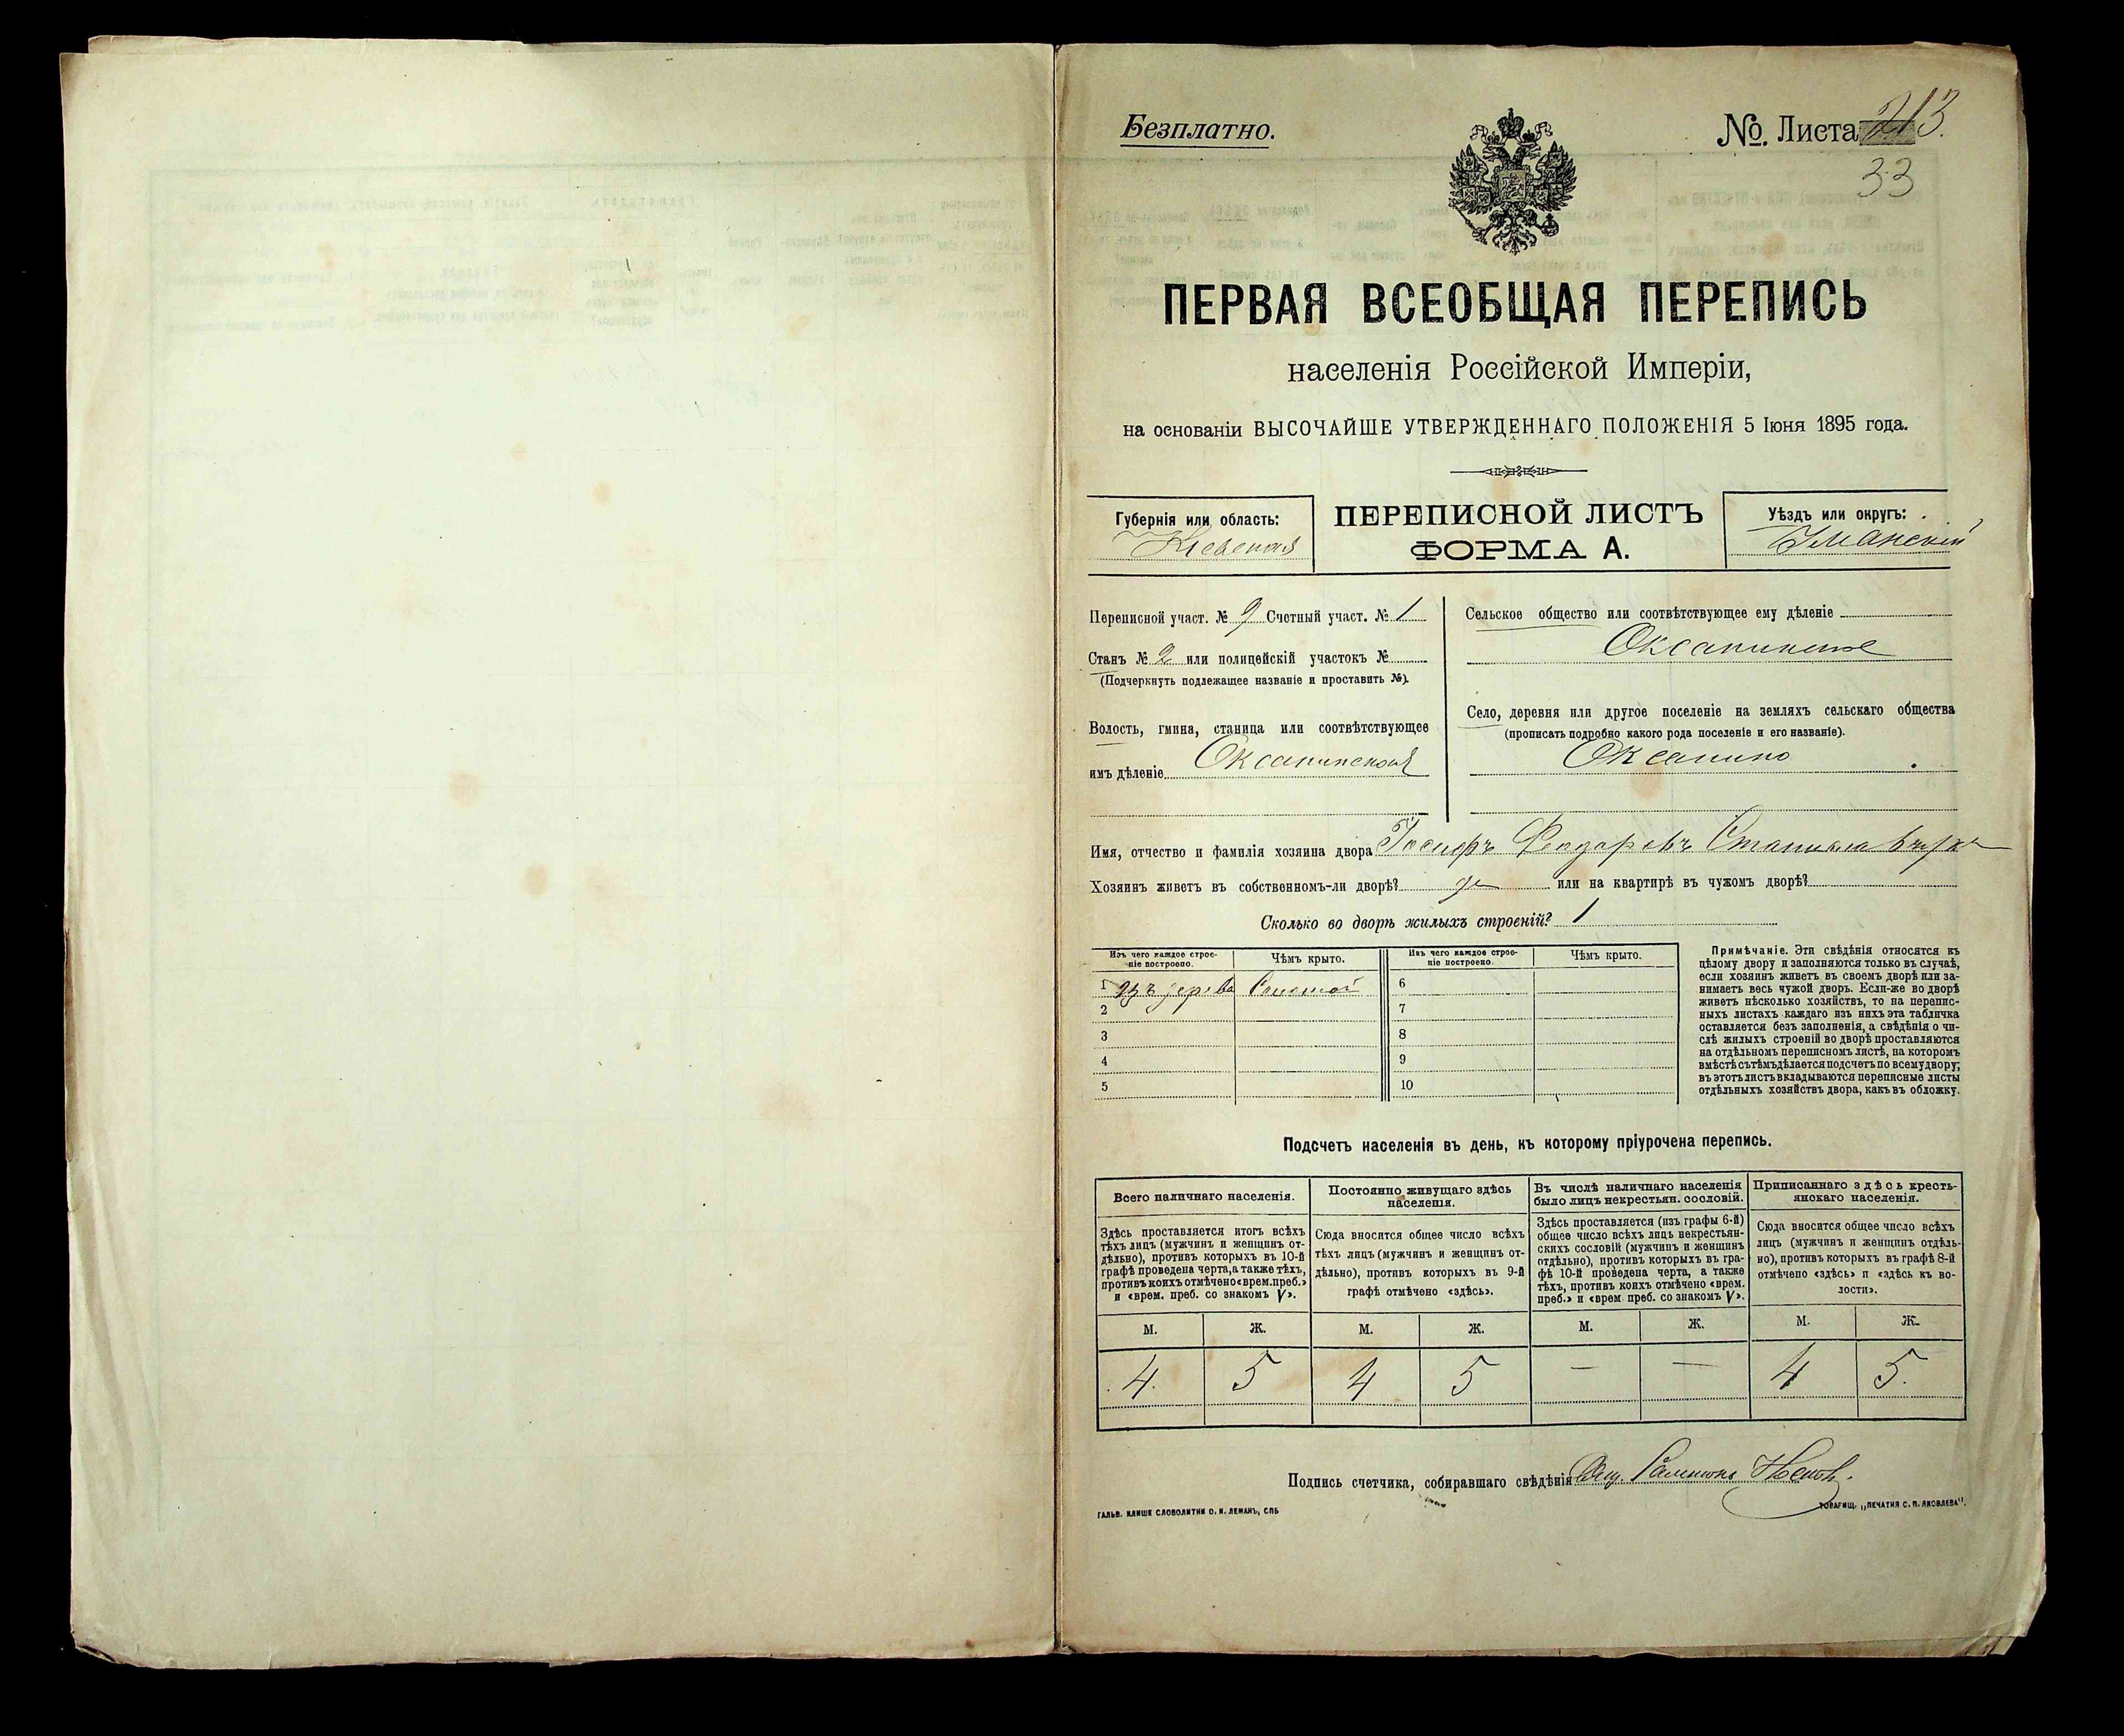 Безплатно.
№ Листа 213.
33
ПЕРВАЯ ВСЕОБЩАЯ ПЕРЕПИСЬ
населенія Россійской Имперіи,
на основаніи ВЫСОЧАЙШЕ УТВЕРЖДЕННАГО ПОЛОЖЕНІЯ 5 Іюня 1895 года.
Губернія или область:
Кіевская
ПЕРЕПИСНОЙ ЛИСТЪ
ФОРМА А.
Уѣздъ или округъ:
Уманскій
Переписной участ. № 9 Счетный участ. № 1
Станъ № 2 или полицейскій участокъ №
(Подчеркнуть подлежащее названіе и проставить №).
Волость, гмина, станица или соотвѣтствующее
имъ дѣленіе Оксанинская
Сельское общество или соотвѣтствующее ему дѣленіе
Оксанинское
Село, деревня или другое поселеніе на земляхъ сельскаго общества
(прописать подробно какого рода поселеніе и его названіе).
Оксанино
Имя, отчество и фамилія хозяина двора Іосифъ Феодоровъ
Хозяинъ живетъ въ собственномъ-ли дворѣ? да или на квартирѣ въ чужомъ дворѣ?
Сколько во дворѣ жилыхъ строеній? 1
Изъ чего каждое строеніе построено. Чѣмъ крыто. Изъ чего каждое строеніе построено. Чѣмъ крыто.
1 Изъ дерева Соломой 6
2 7
3 8
4 9
5 10
Примѣчаніе. Эти свѣдѣнія относятся къ
цѣлому двору и заполняются только въ случаѣ,
если хозяинъ живетъ въ своемъ дворѣ или за-
нимаетъ весь чужой дворъ. Если-же во дворѣ
живетъ нѣсколько хозяйствъ, то на перепис-
ныхъ листахъ каждаго изъ нихъ эта табличка
оставляется безъ заполненія, а свѣдѣнія о чи-
слѣ жилыхъ строеній во дворѣ проставляются
на отдѣльномъ переписномъ листѣ, на которомъ
вмѣстѣ съ тѣмъ дѣлается подсчетъ по всему двору;
въ этотъ листъ вкладываются переписные листы
отдѣльныхъ хозяйствъ двора, какъ въ обложку.
Подсчетъ населенія въ день, къ которому пріурочена перепись.
Всего наличнаго населенія.
Здѣсь проставляется итогъ всѣхъ
тѣхъ лицъ (мужчинъ и женщинъ от-
дѣльно), противъ которыхъ въ 10-й
графѣ проведена черта, а также тѣхъ,
противъ коихъ отмѣчено «врем. преб.»
и «врем. преб. со знакомъ V».
Постоянно живущаго здѣсь
населенія.
Сюда вносится общее число всѣхъ
тѣхъ лицъ (мужчинъ и женщинъ от-
дѣльно), противъ которыхъ въ 9-й
графѣ отмѣчено «здѣсь».
Въ числѣ наличнаго населенія
было лицъ некрестьян. сословій.
Здѣсь проставляется (изъ графы 6-й)
общее число всѣхъ лицъ некрестьян-
скихъ сословій (мужчинъ и женщинъ
отдѣльно), противъ которыхъ въ гра-
фѣ 10-й проведена черта, а также
тѣхъ, противъ коихъ отмѣчено «врем.
преб.» и «врем. преб. со знакомъ V».
Приписаннаго здѣсь кресть-
янскаго населенія.
Сюда вносится общее число всѣхъ
лицъ (мужчинъ и женщинъ отдѣль-
но), противъ которыхъ въ графѣ 8-й
отмѣчено «здѣсь» и «здѣсь къ во-
лости».
М. Ж. М. Ж. М. Ж. М. Ж.
4. 5 4 5 — — 4 5.
Подпись счетчика, собиравшаго свѣдѣнія
ГАЛЬВ. КЛИШЕ СЛОВОЛИТНИ О. И. ЛЕМАНЪ, СПБ
ТОВАРИЩ. „ПЕЧАТНЯ С. П. ЯКОВЛЕВА".